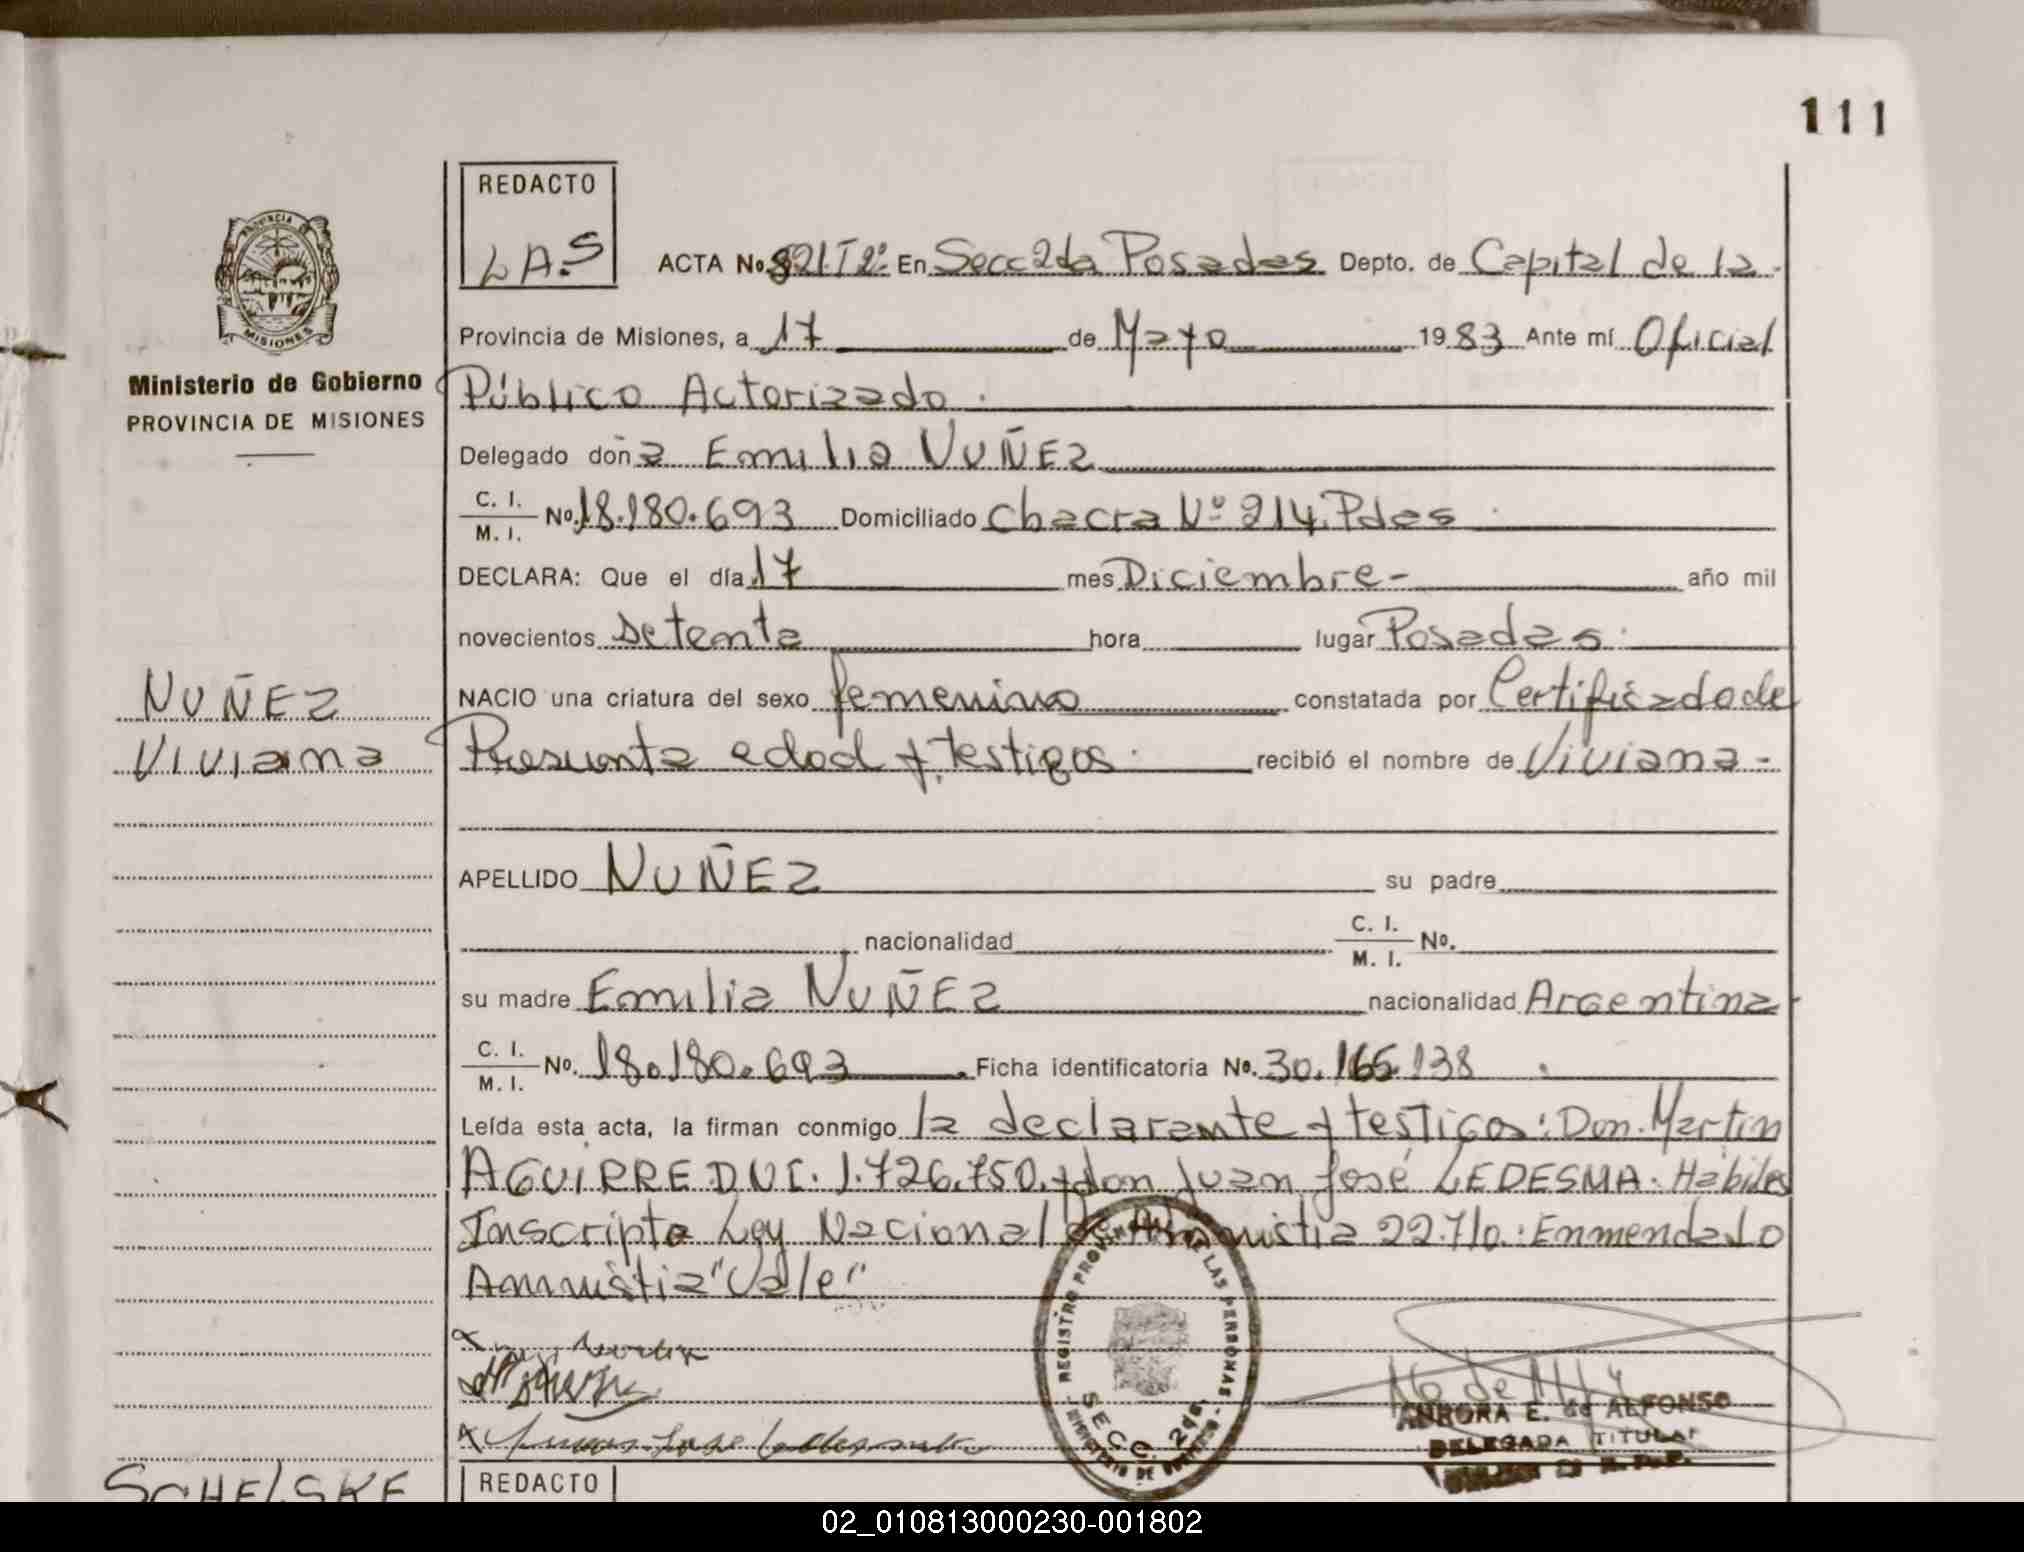 111
REDACTO
L.A.S
ACTA No. 821.T2º En Secc 2da Posadas Depto. de Capital de la
Provincia de Misiones, a 17 de Mayo 1983 Ante mí Oficial
Público Actorizado.
Delegado doña Emilia NUÑEZ
C. I. / M. I. No. 18.180.693 Domiciliado Chacra Nº 214. Pdas
DECLARA: Que el día 17 mes Diciembre- año mil
novecientos Setenta hora lugar Posadas.
NACIO una criatura del sexo femenino constatada por Certificado de
Presunta edad y testigos. recibió el nombre de Viviana-
APELLIDO NUÑEZ su padre
nacionalidad C. I. / M. I. No.
su madre Emilia NUÑEZ nacionalidad Argentina
C. I. / M. I. No. 18.180.693 Ficha identificatoria No. 30.165.138
Leída esta acta, la firman conmigo la declarante y testigos: Don. Martin
AGUIRRE DNI. 1.726.750. y don Juan José LEDESMA. Habiles
Inscripta Ley Nacional de Amnistia 22.710.: Enmendado
Amnistia "Vale"
PROVINCIA DE
MISIONES
Ministerio de Gobierno
PROVINCIA DE MISIONES
NUÑEZ
Viviana
REGISTRO PROVINCIAL DE LAS PERSONAS
SECC. 2da
MINISTERIO DE GOBIERNO
AURORA E. de ALFONSO
DELEGADA TITULAR
SCHELSKE
REDACTO
02_010813000230-001802